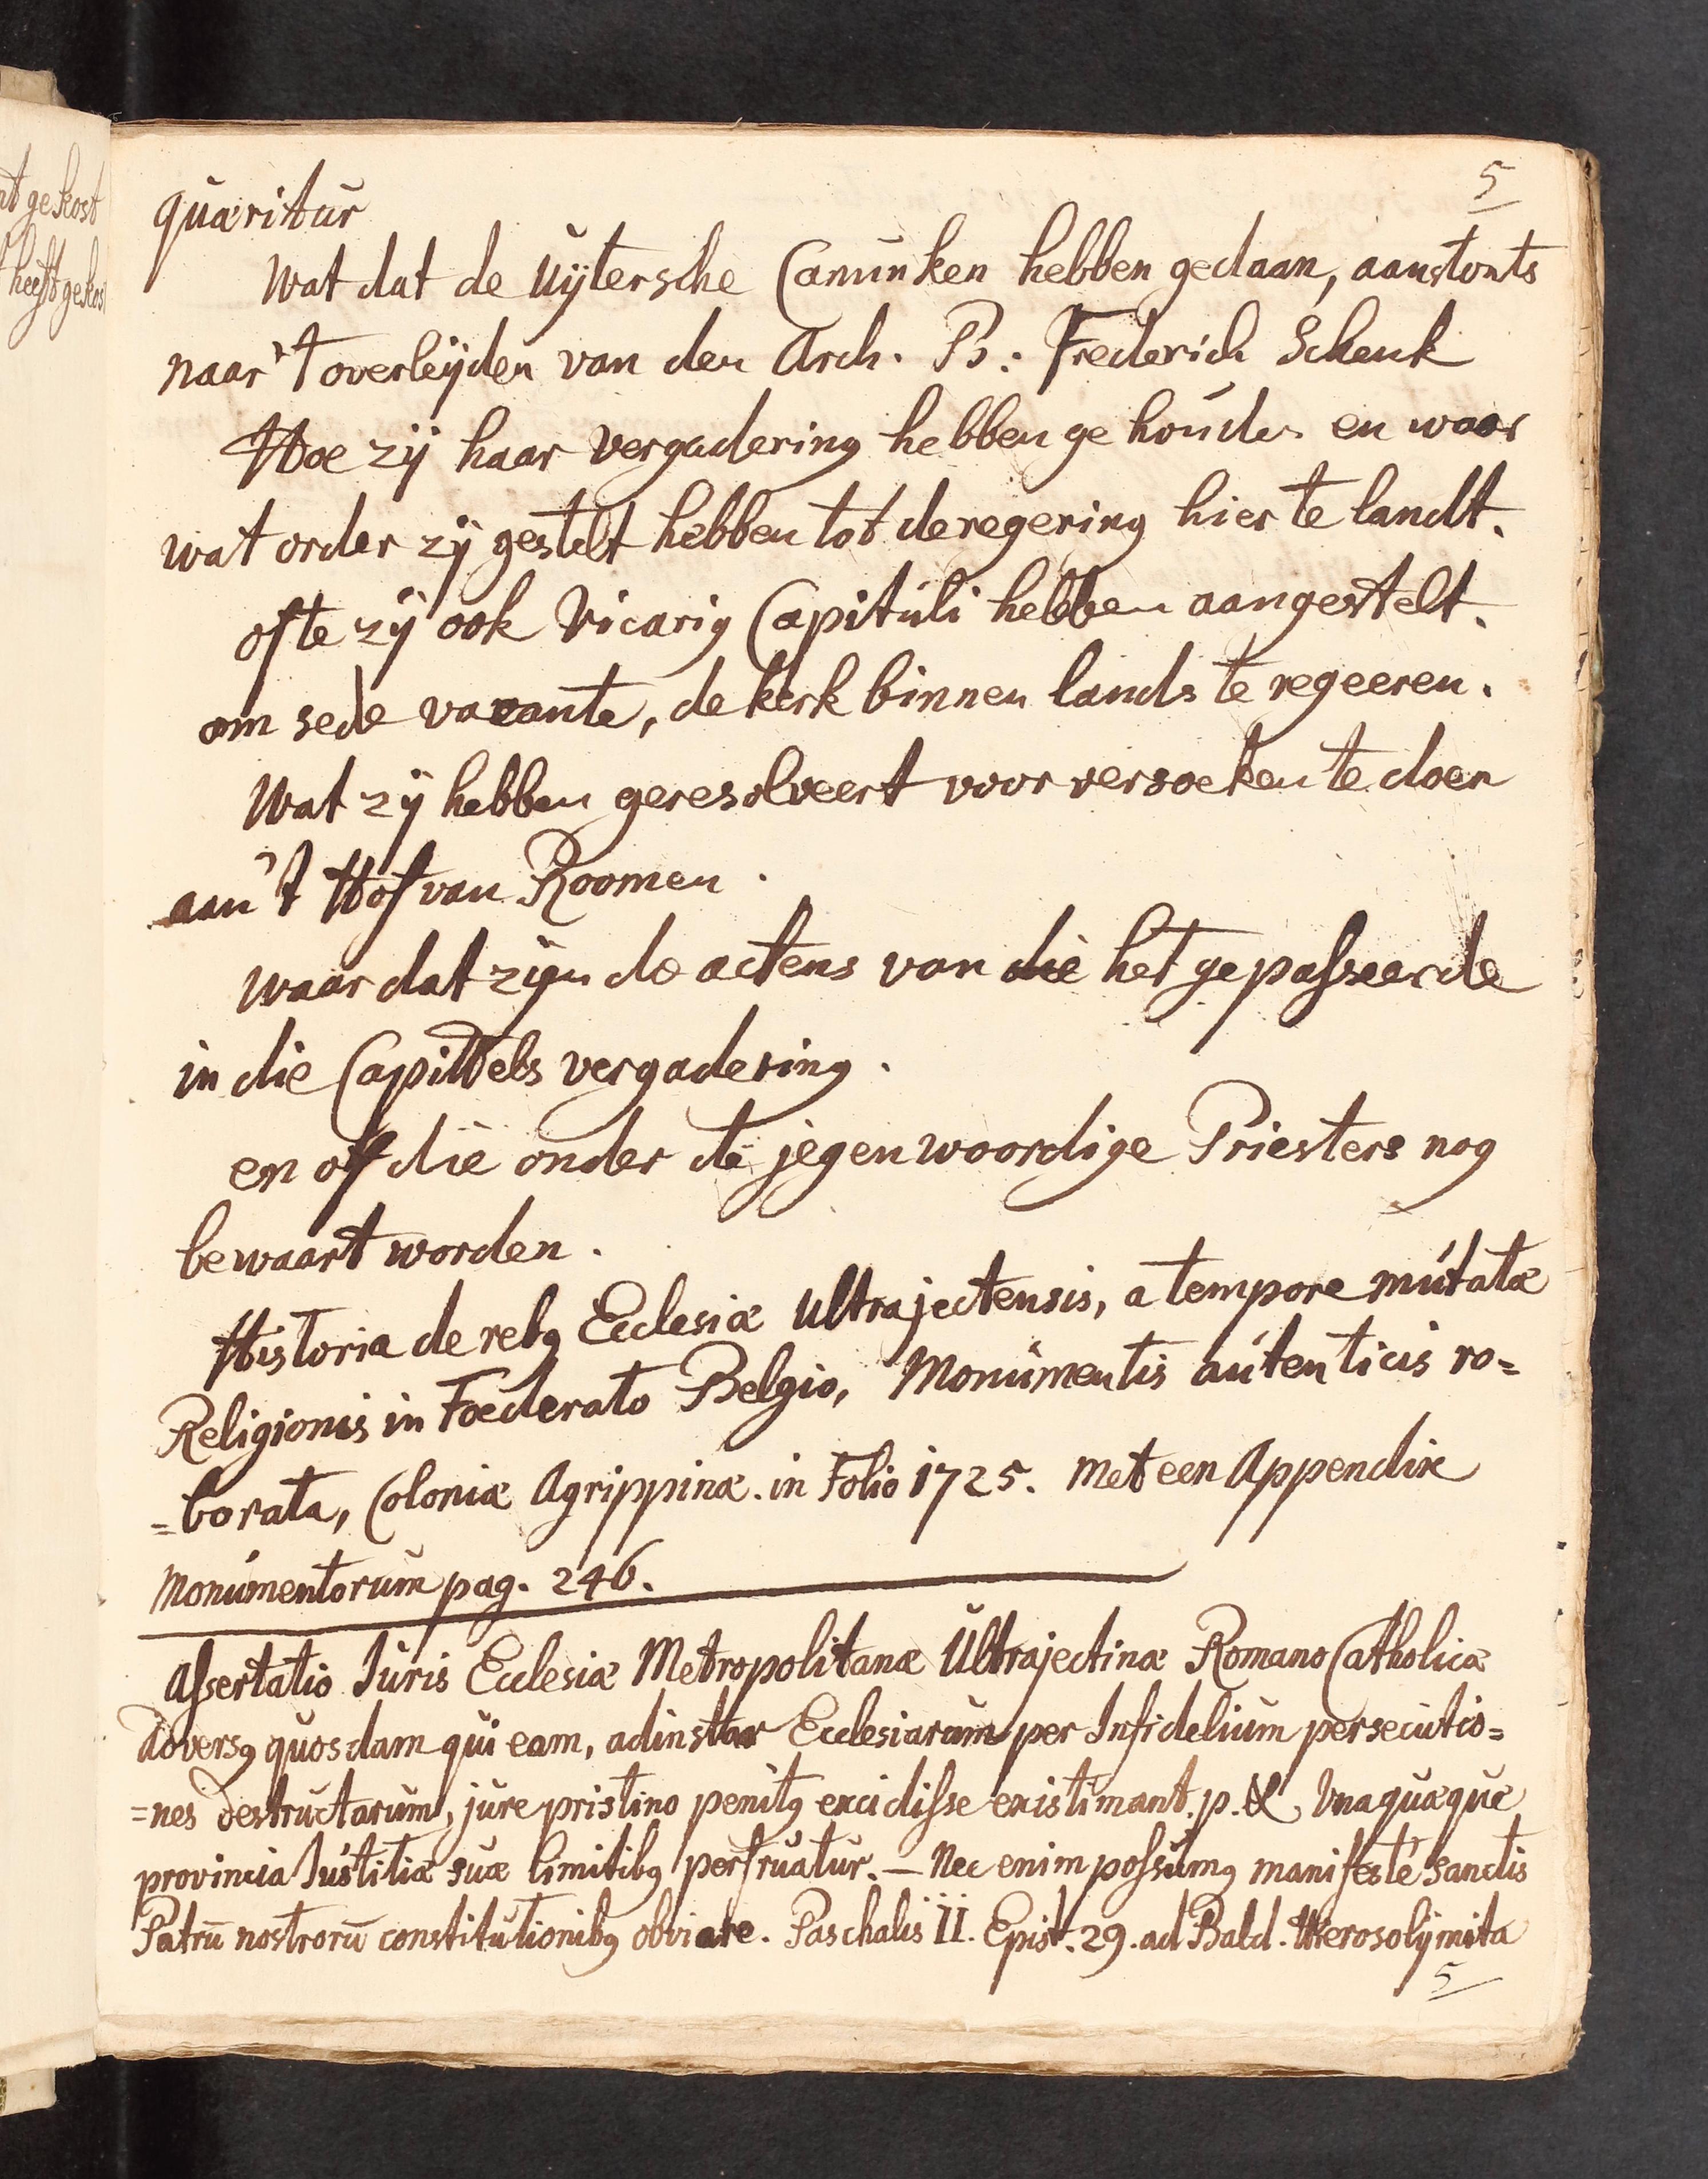 5
quæritur
Wat dat de Uÿtersche Canunken hebben gedaan, aanstonts
naar 't overleÿden van den Arch. B: Frederich Schenk
Hoe zÿ haar vergadering hebben gehouden en waar
wat order zÿ gestelt hebben tot de regering hier te landt.
ofte zÿ ook Vicariȷ Capituli hebben aangestelt.
om sede vacante, de kerk binnen lands te regeeren.
Wat zÿ hebben geresolveert voor versoeken te doen
aan 't Hof van Roomen.
waar dat zÿn de actens van die het gepasseerde
in die Capittels vergadering.
en of die onder de jegenwoordige Priesters nog
bewaart worden.
Historia de rebꝯ Ecclesiæ Ultrajectensis, a tempore mutatæ
Religionis in Foederato Belgio, Monumentis autenticis ro=
=borata, Coloniæ Agrippinæ. in Folio 1725. met een Appendix
Monumentorum pag. 246.
Assertatio Juris Ecclesiæ Metropolitanæ Ultrajectinæ Romano Catholicæ
Adversꝯ quosdam qui eam, adinstar Ecclesiarum per Infidelium persecutio=
=nes destructarum, jure pristino penitꝯ excidisse existimant. p. Unaquæque
provincia Justitiæ suæ limitibꝯ perfruatur. — Nec enim possumꝯ manifestè sanctis
Patrū nostrorū constitutionibꝯ obviare. Paschalis II. Epist. 29. ad Bald. Hierosolÿmita
5
nt gekost
heeft gekos